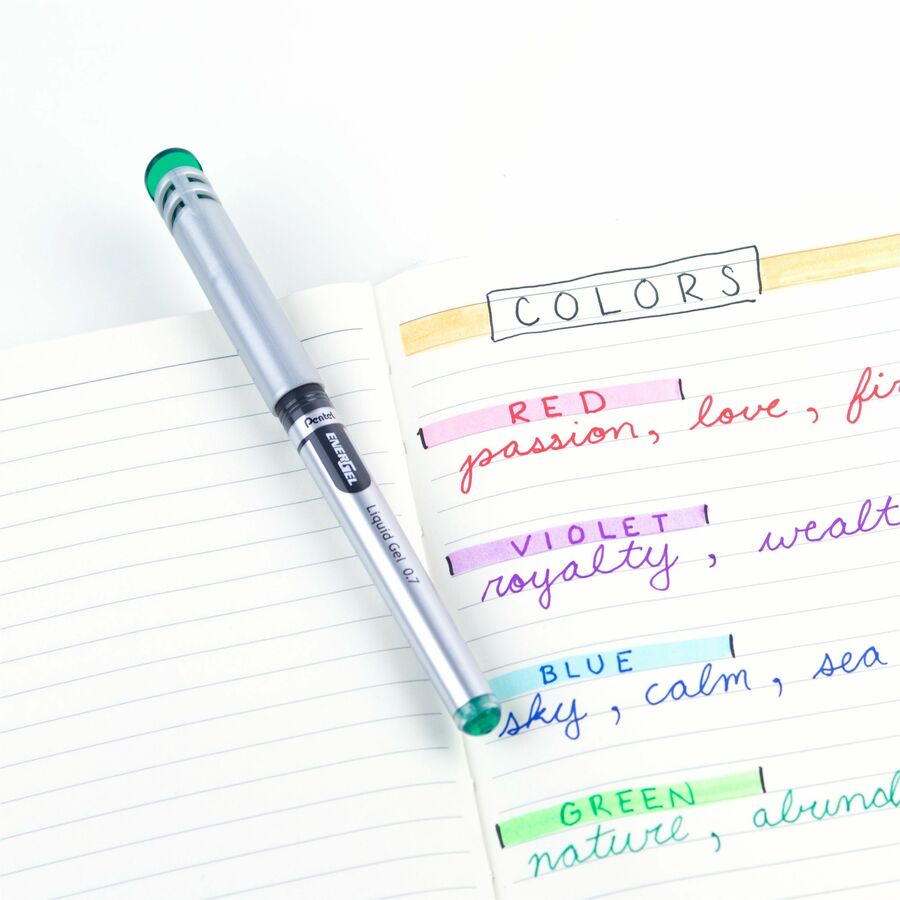 Pentel
ENERGEL
Liquid Gel 0.7
COLORS
RED
passion, love,
VIOLET
royalty,
BLUE
sky, calm, sea
GREEN
nature,